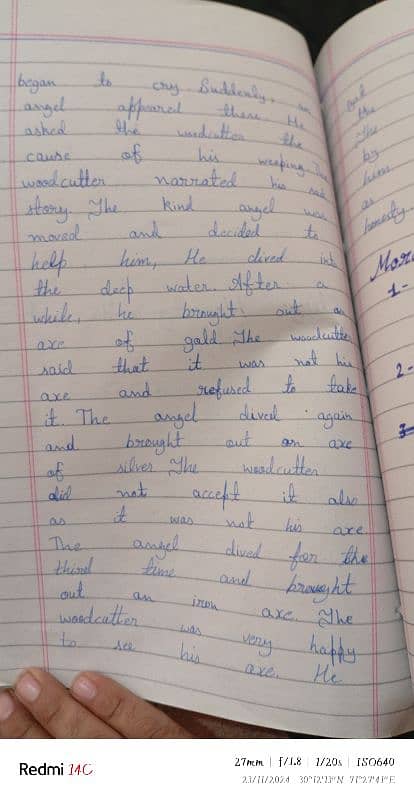 began to cry. Suddenly, an
angel appeared there. He
asked the woodcutter the
cause of his weeping. The
woodcutter narrated his sad
story. The kind angel was
moved and decided to
help him, He dived into
the deep water. After a
while, he brought out an
axe of gald. The woodcutter
said that it was not his
axe and refused to take
it. The angel dived again
and brought out an axe
of silver. The woodcutter
did not accept it also
as it was not his axe
The angel dived for the
third time and brought
out an iron axe. The
woodcutter was very happy
to see his axe. He
out
the
the
by
him
as
honesty.
Mor
1-
2-
3-
Redmi 14C
27mm | f/1.8 | 1/20s | ISO640
23/11/2024 30°12'13"N 71°27'41"E